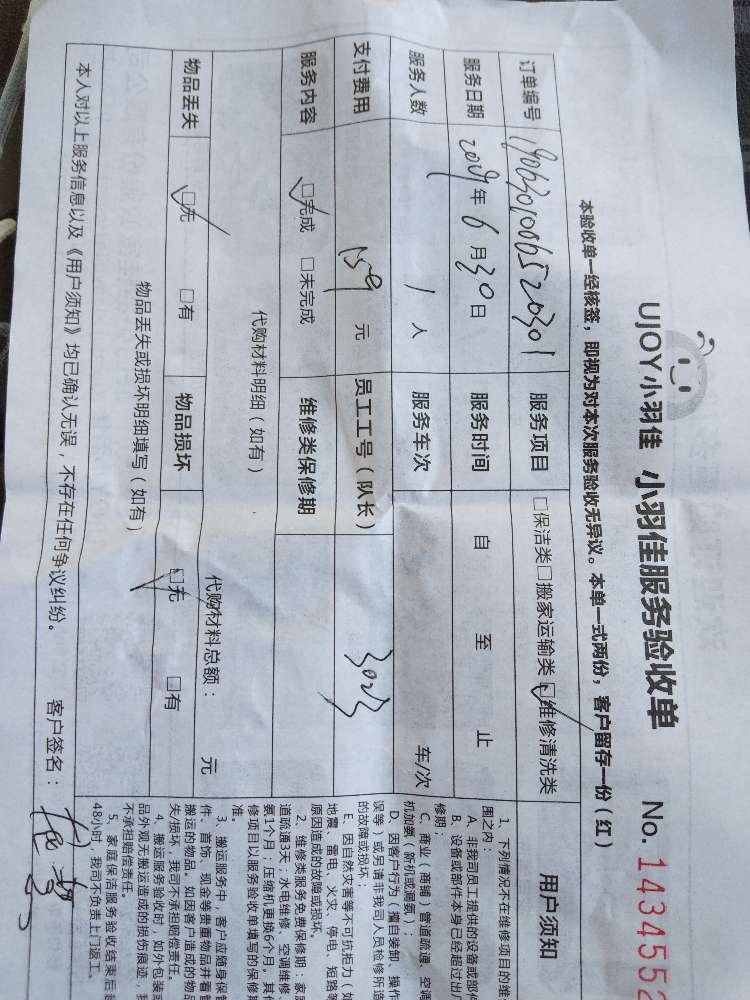 UJOY小羽佳 小羽佳服务验收单 No. 1434552
本验收单一经核签，即视为对本次服务验收无异议。本单一式两份，客户留存一份（红）
订单编号 1906301006520301 服务项目 □保洁类□搬家运输类☑维修清洗类
服务日期 2019年6月30日 服务时间 自 至 止
服务人数 1 人 服务车次 车/次
支付费用 159 元 员工工号（队长） 3023
服务内容 ☑完成 □未完成 维修类保修期
代购材料明细（如有） 代购材料总额： 元
物品丢失 ☑无 □有 物品损坏 ☑无 □有
物品丢失或损坏明细填写（如有）
本人对以上服务信息以及《用户须知》均已确认无误，不存在任何争议纠纷。 客户签名：
用户须知
1、下列情况不在维修项目的维
围之内：
A、非我司员工提供的设备或部件
B、设备或部件本身已经超过出厂
修期；
C、商业（商铺）管道疏通、空调
机加氨（新机或漏氨）；
D、因客户行为（擅自装卸、操作
误等）或另请非我司人员检修所造
的故障或损坏；
E、因自然灾害等不可抗拒力（如
地震、雷电、火灾、停电、短路等
原因造成的故障或损坏。
2、维修类服务免费保修期：家庭
道疏通3天；水电维修、空调维修、
氨1个月；压缩机更换6个月。其他
修项目以服务验收单填写的保修期
准。
3、搬运服务中，客户应随身保管
件、首饰、现金等贵重物品并看管
搬运的物品。如因客户造成的物品
失/损坏，我司不承担赔偿责任。
4、搬运服务验收时，如外包装或
品外观无搬运造成的损伤痕迹，我
不承担赔偿责任
5、家庭保洁服务验收结束后超
48小时，我司不负责上门返工。